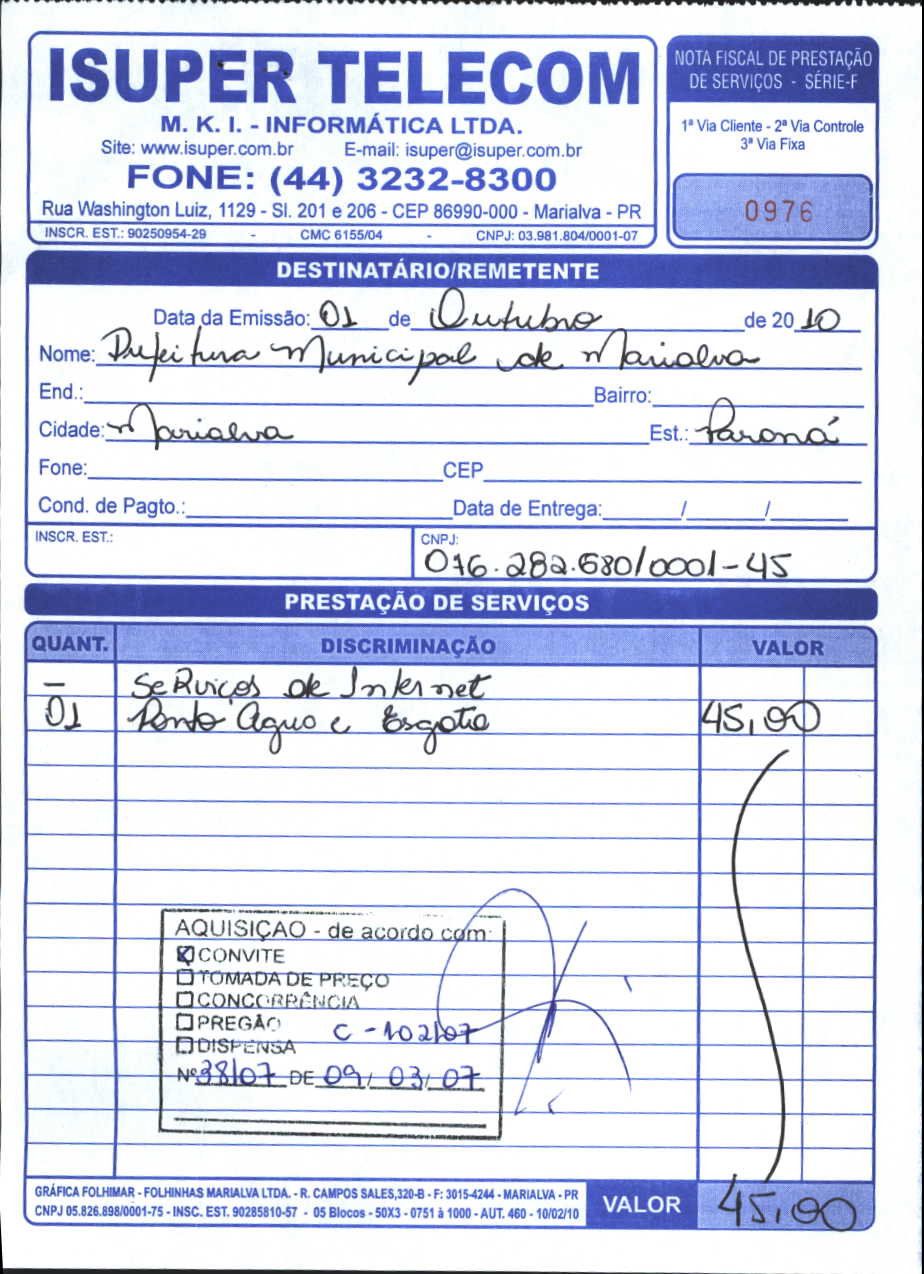 ISUPER TELECOM
M. K. I. - INFORMÁTICA LTDA.
Site: www.isuper.com.br E-mail: isuper@isuper.com.br
FONE: (44) 3232-8300
Rua Washington Luiz, 1129 - Sl. 201 e 206 - CEP 86990-000 - Marialva - PR
INSCR. EST.: 90250954-29 - CMC 6155/04 - CNPJ: 03.981.804/0001-07
NOTA FISCAL DE PRESTAÇÃO
DE SERVIÇOS - SÉRIE-F
1ª Via Cliente - 2ª Via Controle
3ª Via Fixa
0976
DESTINATÁRIO/REMETENTE
Data da Emissão: 01 de Outubro de 2010
Nome: Prefeitura Municipal de Marialva
End.: Bairro:
Cidade: Marialva Est.: Paraná
Fone: CEP
Cond. de Pagto.: Data de Entrega: / /
INSCR. EST.:
CNPJ:
076.282.680/0001-45
PRESTAÇÃO DE SERVIÇOS
QUANT. DISCRIMINAÇÃO VALOR
— Serviços de Internet
01 Ponto Agua e Esgoto 45,00
AQUISIÇÃO - de acordo com:
CONVITE
TOMADA DE PREÇO
CONCORRÊNCIA
PREGÃO
C - 102/07
DISPENSA
Nº 38/07 DE 09/03/07
GRÁFICA FOLHIMAR - FOLHINHAS MARIALVA LTDA. - R. CAMPOS SALES,320-B - F: 3015-4244 - MARIALVA - PR
CNPJ 05.826.898/0001-75 - INSC. EST. 90285810-57 - 05 Blocos - 50X3 - 0751 à 1000 - AUT. 460 - 10/02/10
VALOR 45,00